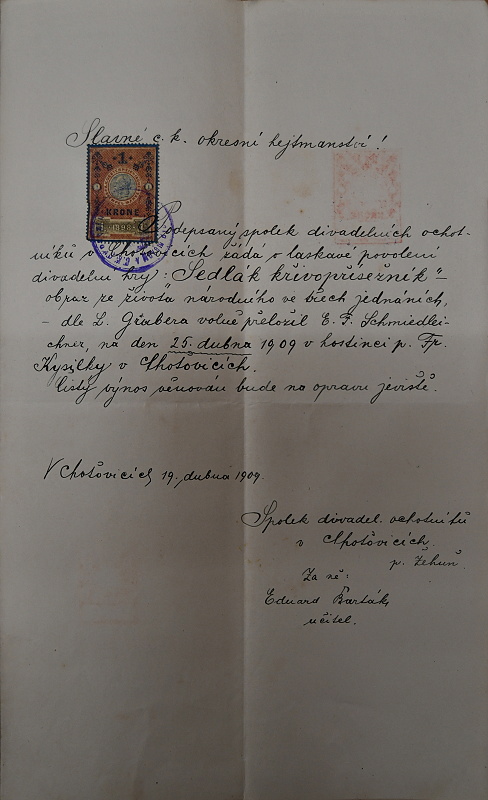 Slavné c. k. okresní hejtmanství!
1
KRONE
1898
Podepsaný spolek divadelních ochot-
níků v Chotovicích žádá o laskavé povolení
divadelní hry: "Sedlák křivopřísežník" =
obraz ze života národního ve třech jednáních,
- dle L. Grubera volně přeložil E. F. Schmiedlei-
chner, na den 25. dubna 1909 v hostinci p. Fr.
Kysilky v Chotovicích.
Čistý výnos věnován bude na opravu jeviště.
V Chotovicích, 19. dubna 1909.
Spolek divadel. ochotníků
v Chotovicích.
p. Žehuň.
Za ně:
Eduard Barták,
učitel.